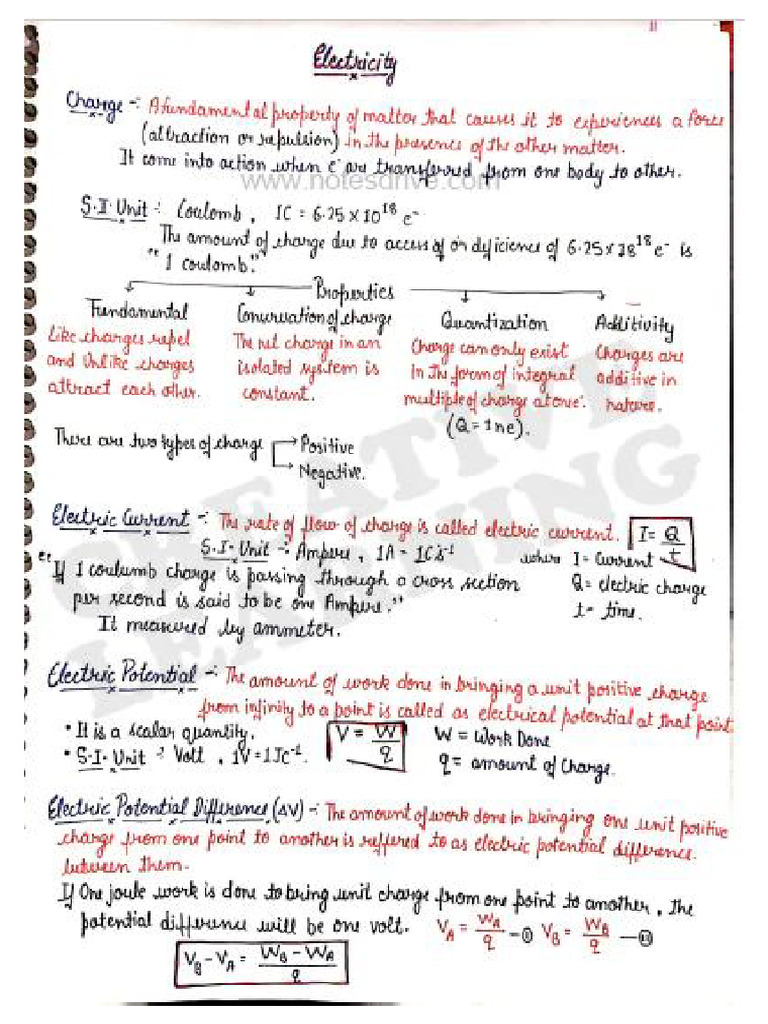 11
Electricity
Charge :- A fundamental property of matter that causes it to experiences a force
(attraction or repulsion) in the presence of the other matter.
It come into action when e⁻ are transferred from one body to other.
www.notesdrive.com
S.I Unit : Coulomb, 1C = 6.25 x 10¹⁸ e⁻
The amount of charge due to access of or deficience of 6.25 x 18¹⁸ e⁻ is
"1 coulomb."
Properties
Fundamental Conservation of charge Quantization Additivity
Like charges repel The net charge in an Charge can only exist Charges are
and Unlike charges isolated system is In the form of integral additive in
attract each other. constant. multiple of charge atone⁻. nature.
(Q = ±ne).
There are two types of charge → Positive
→ Negative.
CREATIVE LEARNING
Electric Current :- The rate of flow of charge is called electric current. I = Q/t
S.I- Unit :- Ampere, 1A = 1Cs⁻¹ where I = Current
"If 1 coulumb charge is passing through a cross section Q = electric charge
per second is said to be one Ampere." t = time.
It measured by ammeter.
Electric Potential :- The amount of work done in bringing a unit positive charge
from infinity to a point is called as electrical potential at that point.
• It is a scalar quantity. V = W/q W = Work Done
• S.I- Unit : Volt, 1V = 1Jc⁻¹. q = amount of Charge.
Electric Potential Difference (ΔV) :- The amount of work done in bringing one unit positive
charge from one point to another is reffered to as electric potential difference
between them.
If One joule work is done to bring unit charge from one point to another, the
potential difference will be one volt. V_A = W_A/q —① V_B = W_B/q —②
V_B - V_A = W_B - W_A/q